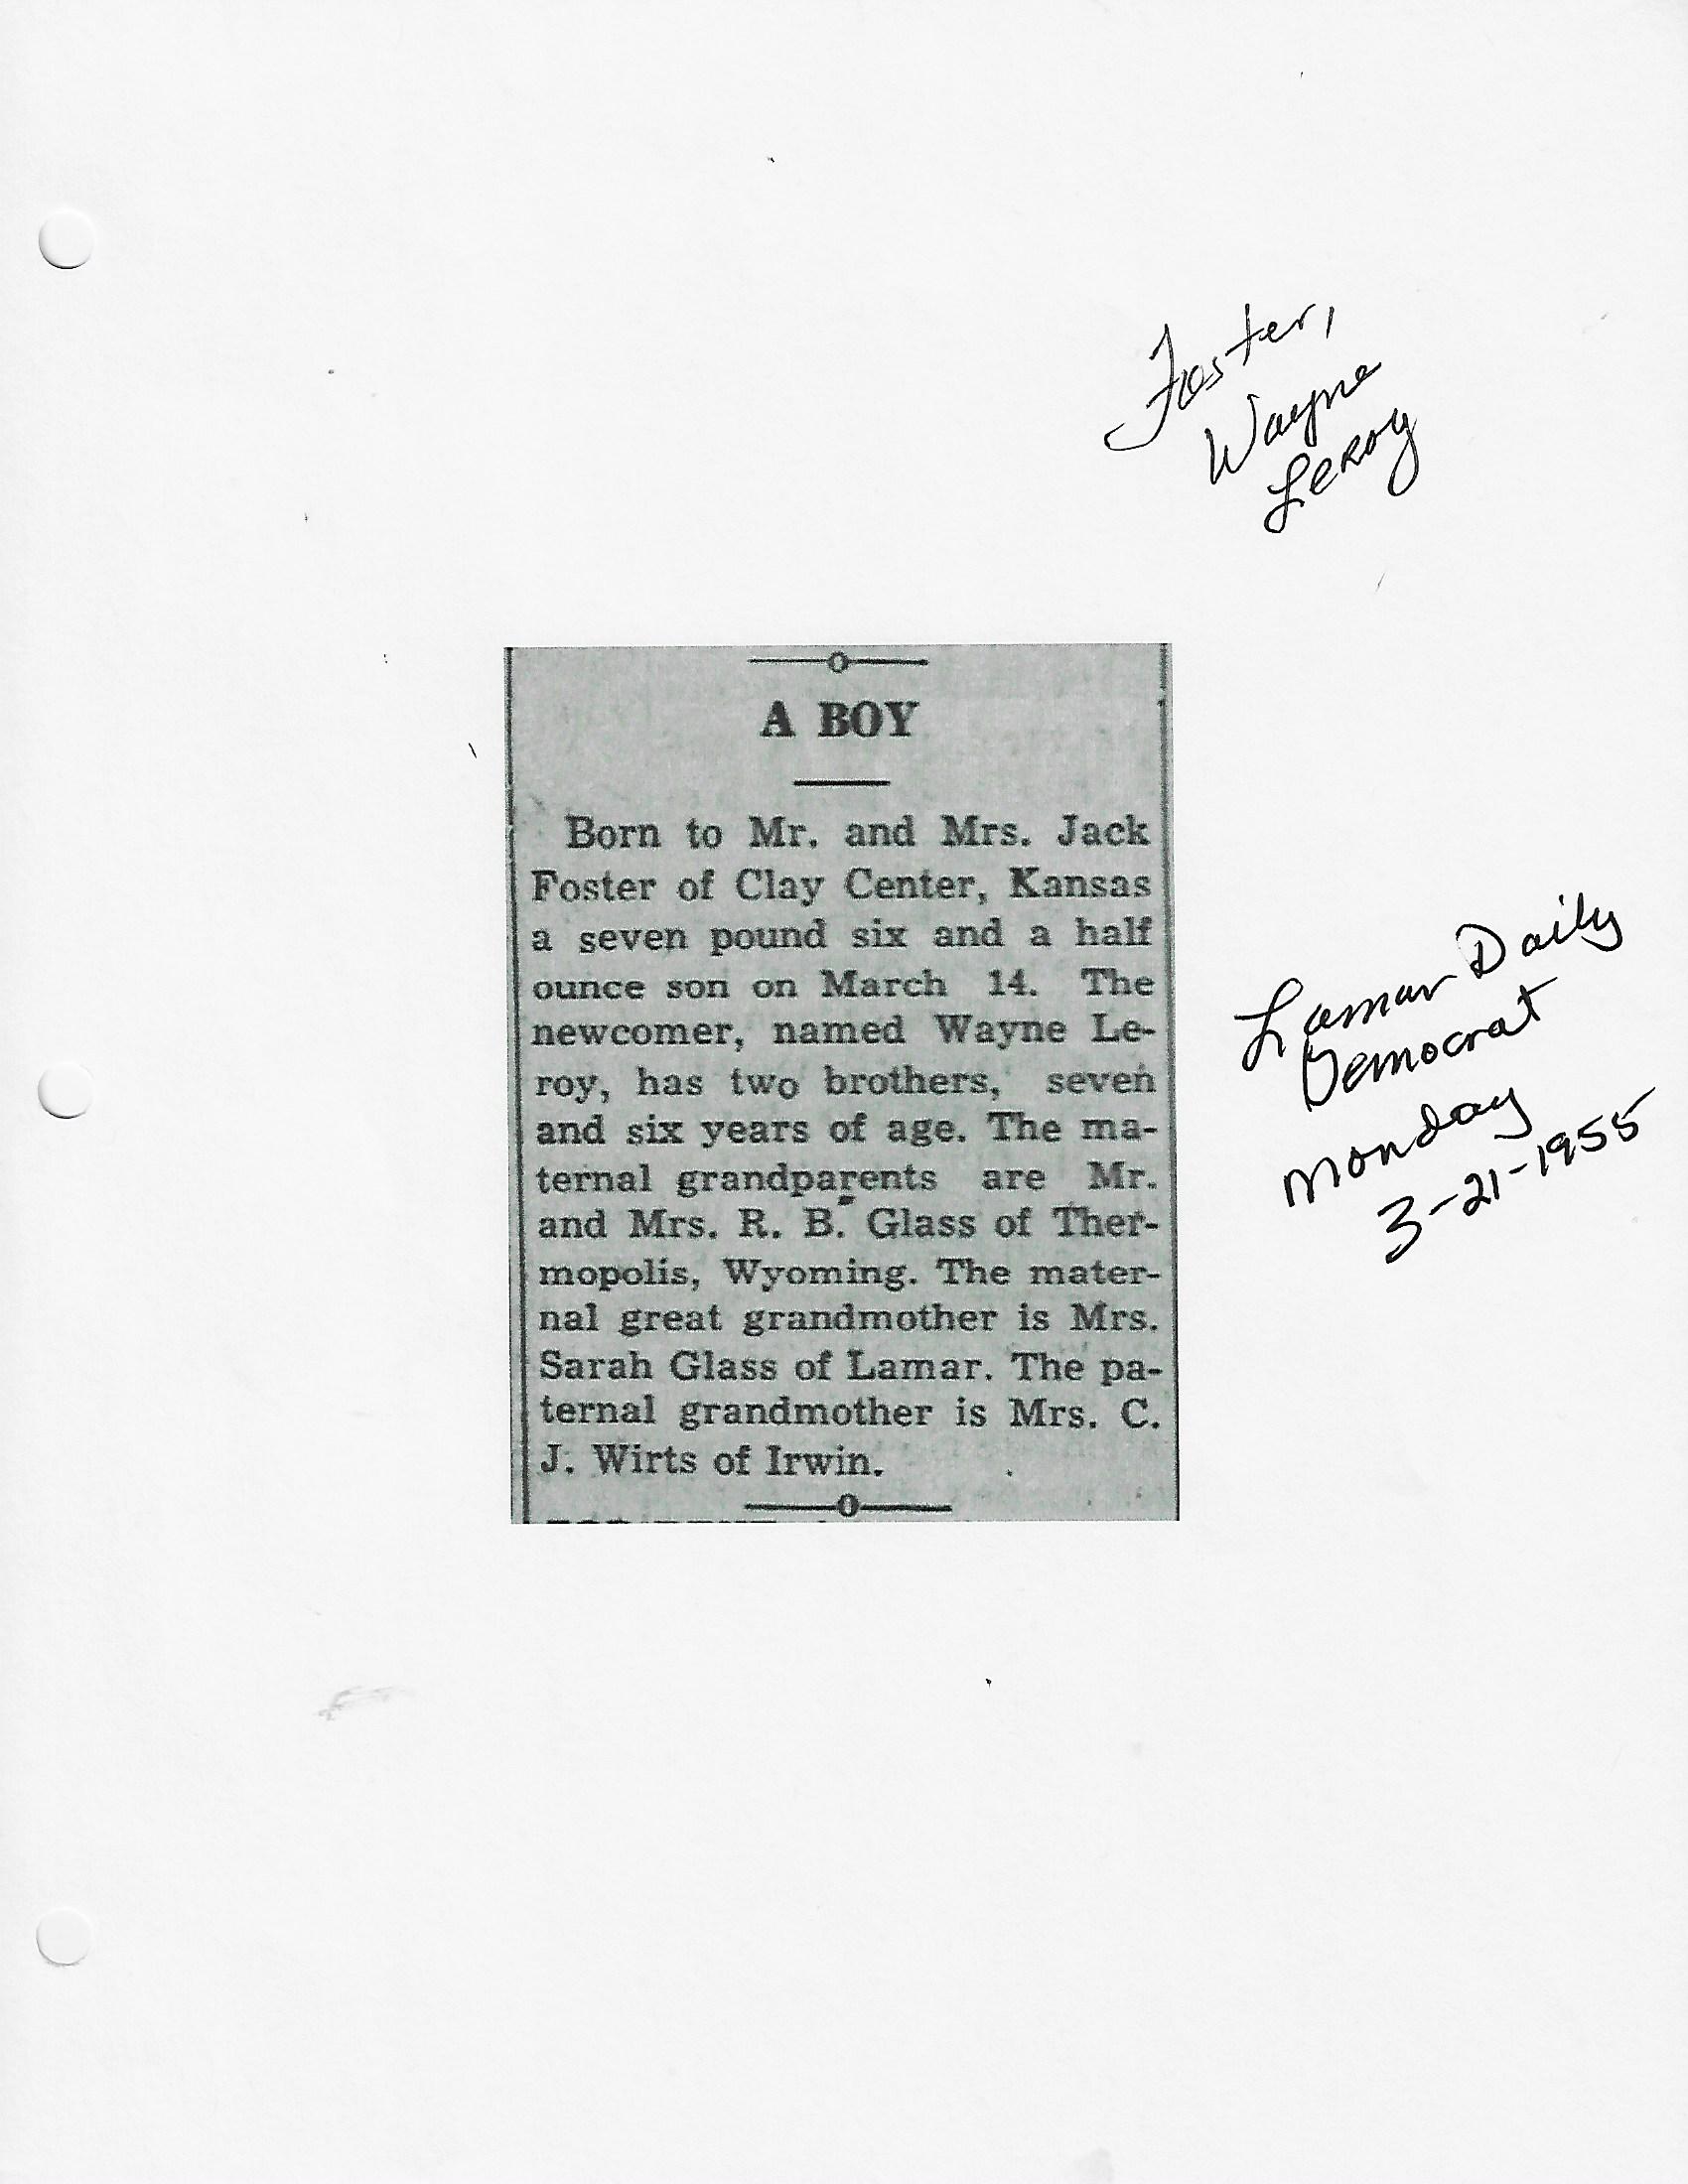 Foster,
Wayne
Leroy
A BOY
Born to Mr. and Mrs. Jack
Foster of Clay Center, Kansas
a seven pound six and a half
ounce son on March 14. The
newcomer, named Wayne Le-
roy, has two brothers, seven
and six years of age. The ma-
ternal grandparents are Mr.
and Mrs. R. B. Glass of Ther-
mopolis, Wyoming. The mater-
nal great grandmother is Mrs.
Sarah Glass of Lamar. The pa-
ternal grandmother is Mrs. C.
J. Wirts of Irwin.
Lamar Daily
Democrat
Monday
3-21-1955